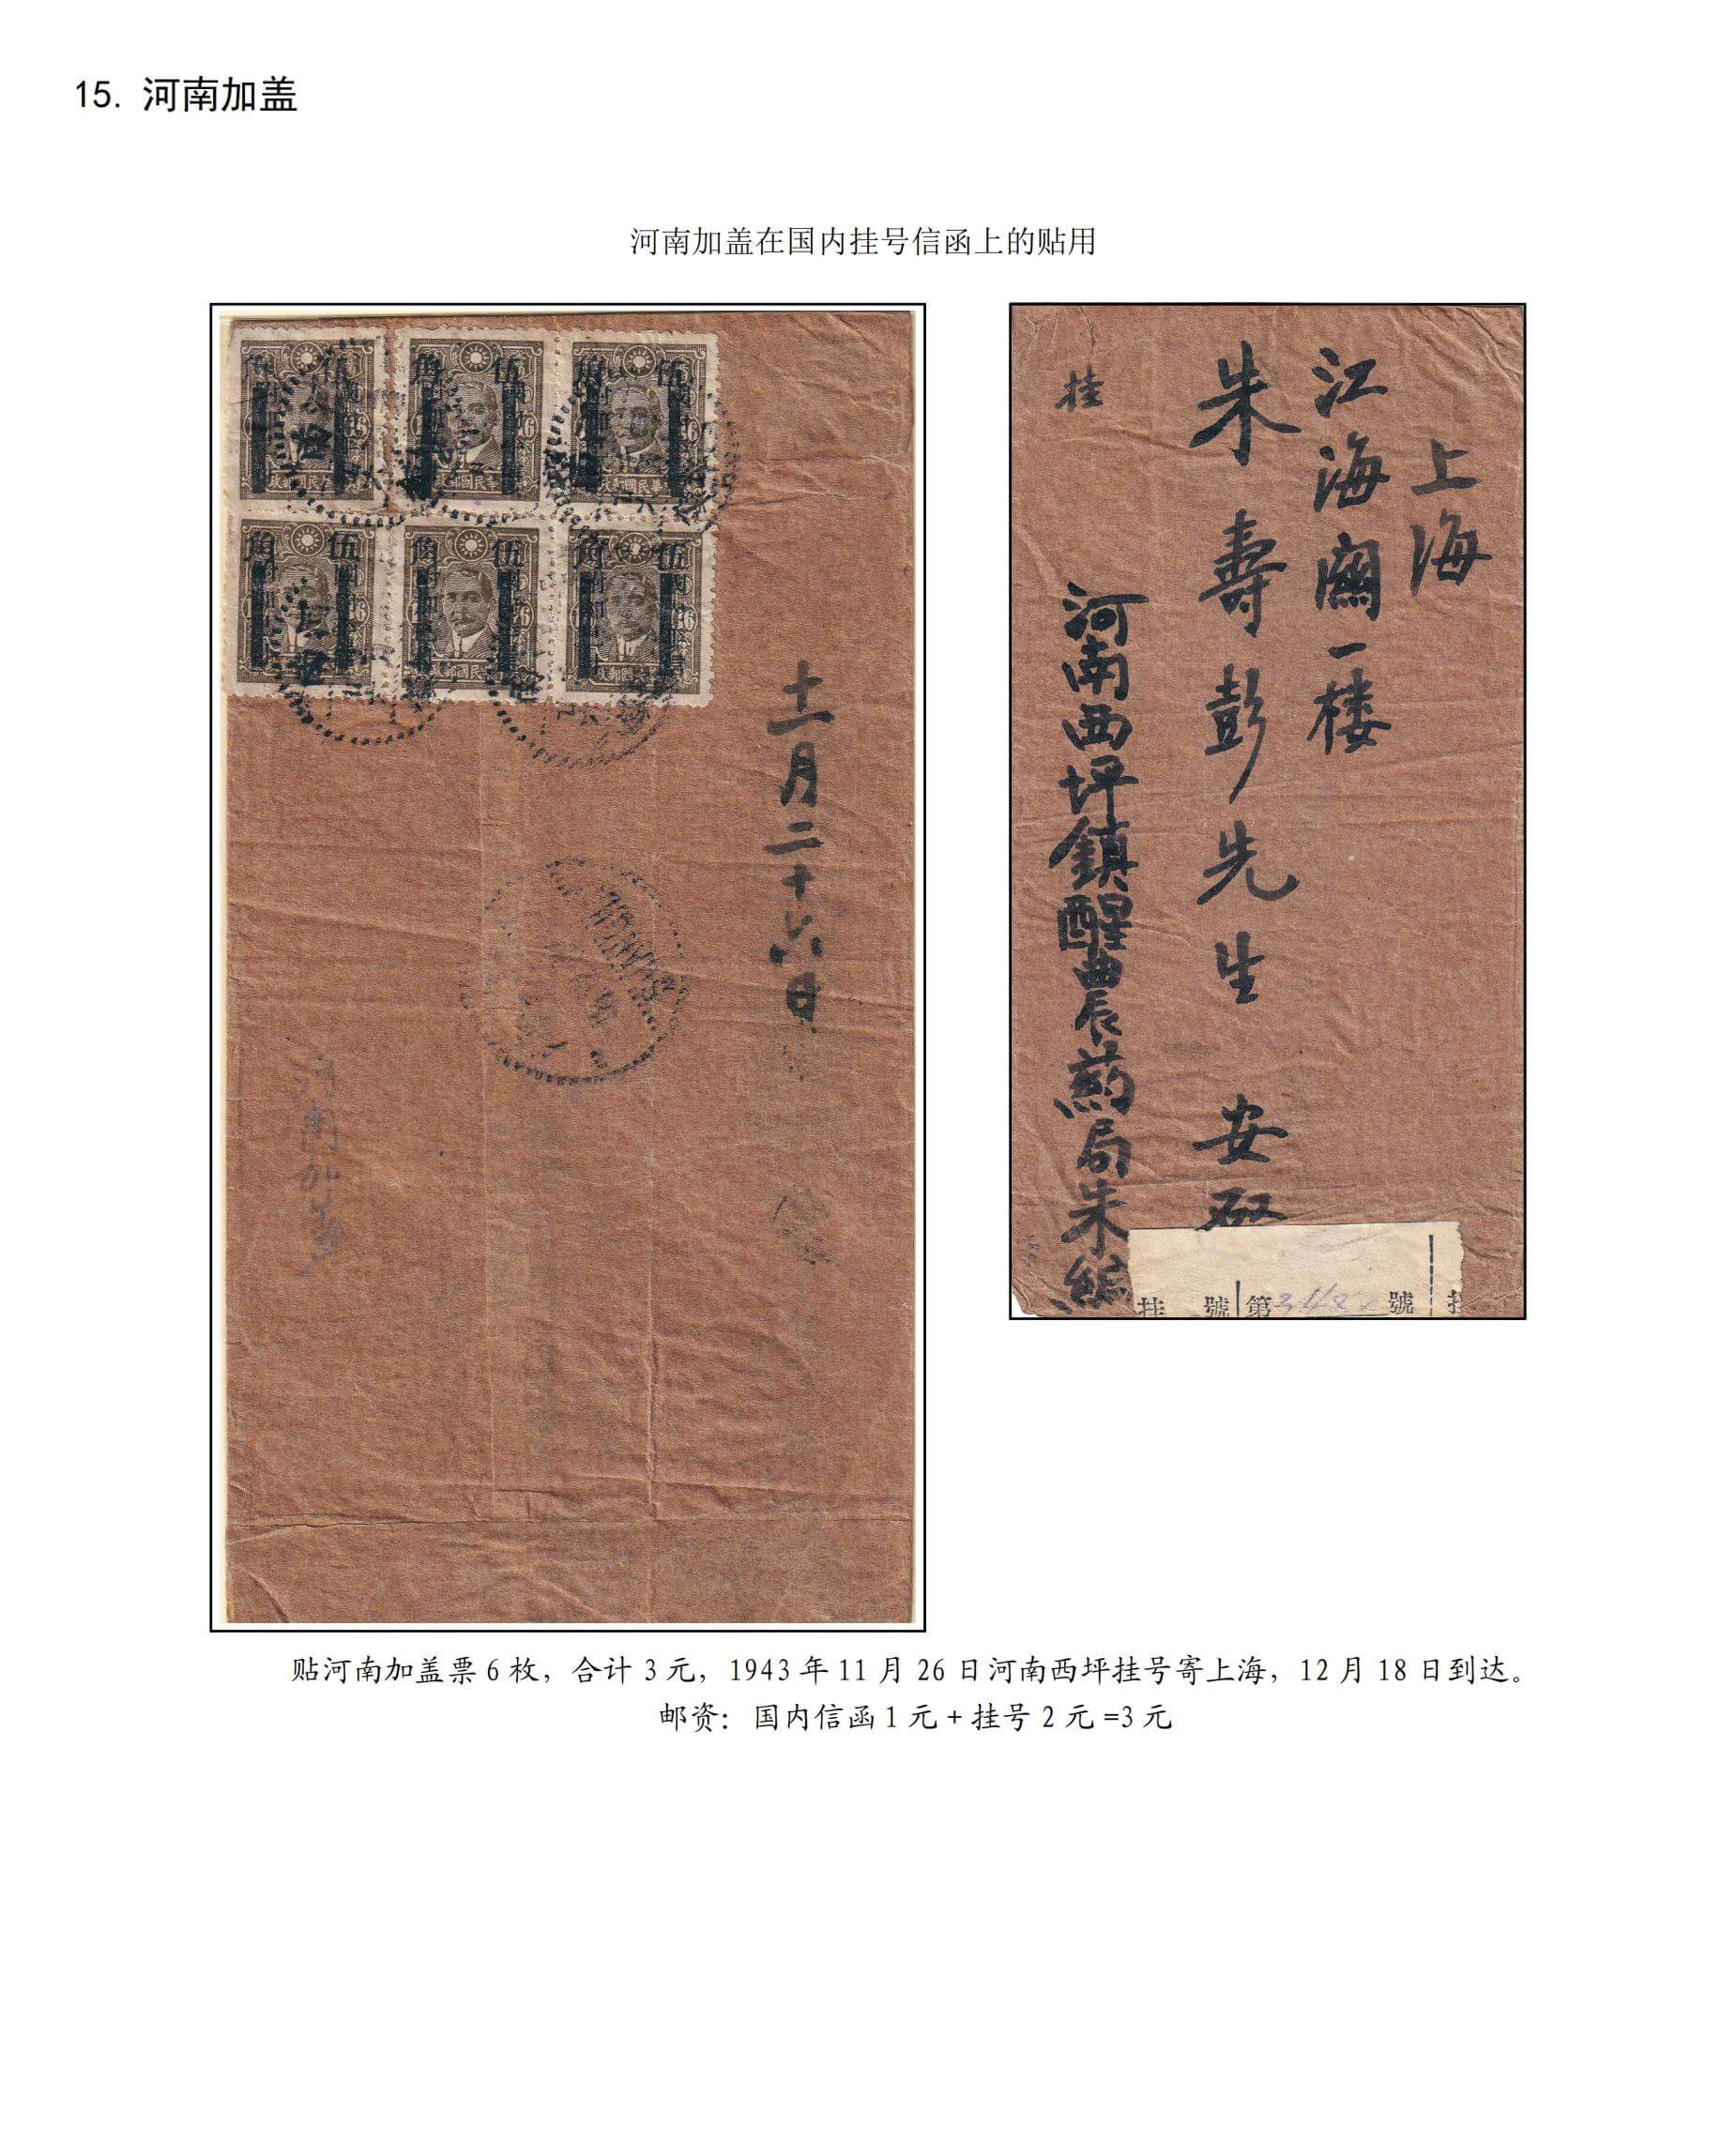 15. 河南加盖
河南加盖在国内挂号信函上的贴用
伍角
伍角
伍角
伍角
伍角
伍角
十一月二十六日
河南加盖
上海
江海關一楼
朱壽彭先生 安啟
挂
河南西坪鎮醒農药局朱緘
挂 號 第 號
贴河南加盖票6枚，合计3元，1943年11月26日河南西坪挂号寄上海，12月18日到达。
邮资：国内信函1元+挂号2元=3元